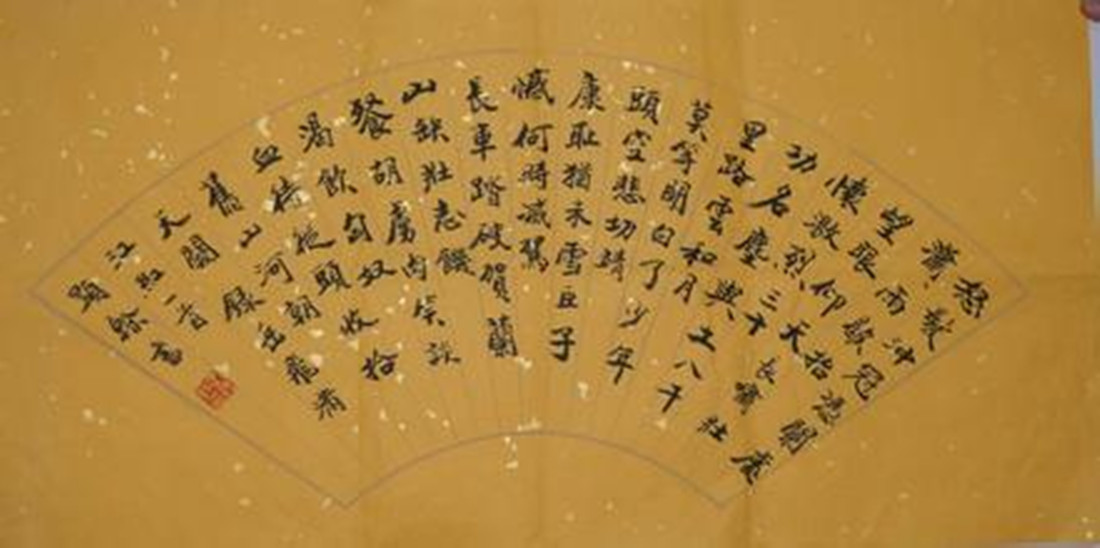 怒髮沖冠憑闌處
瀟雨歇抬
望眼仰天長嘯壯
懷激烈三十
功名塵與土八千
里路雲和月
莫等閑白了少年
頭空悲切靖
康恥猶未雪臣子
憾何時滅駕
長車踏破賀蘭
山缺壯志饑
餐胡虜肉笑談
渴飲匈奴
血待從頭收拾
舊山河朝
天闕錄岳飛滿
江紅一首
書